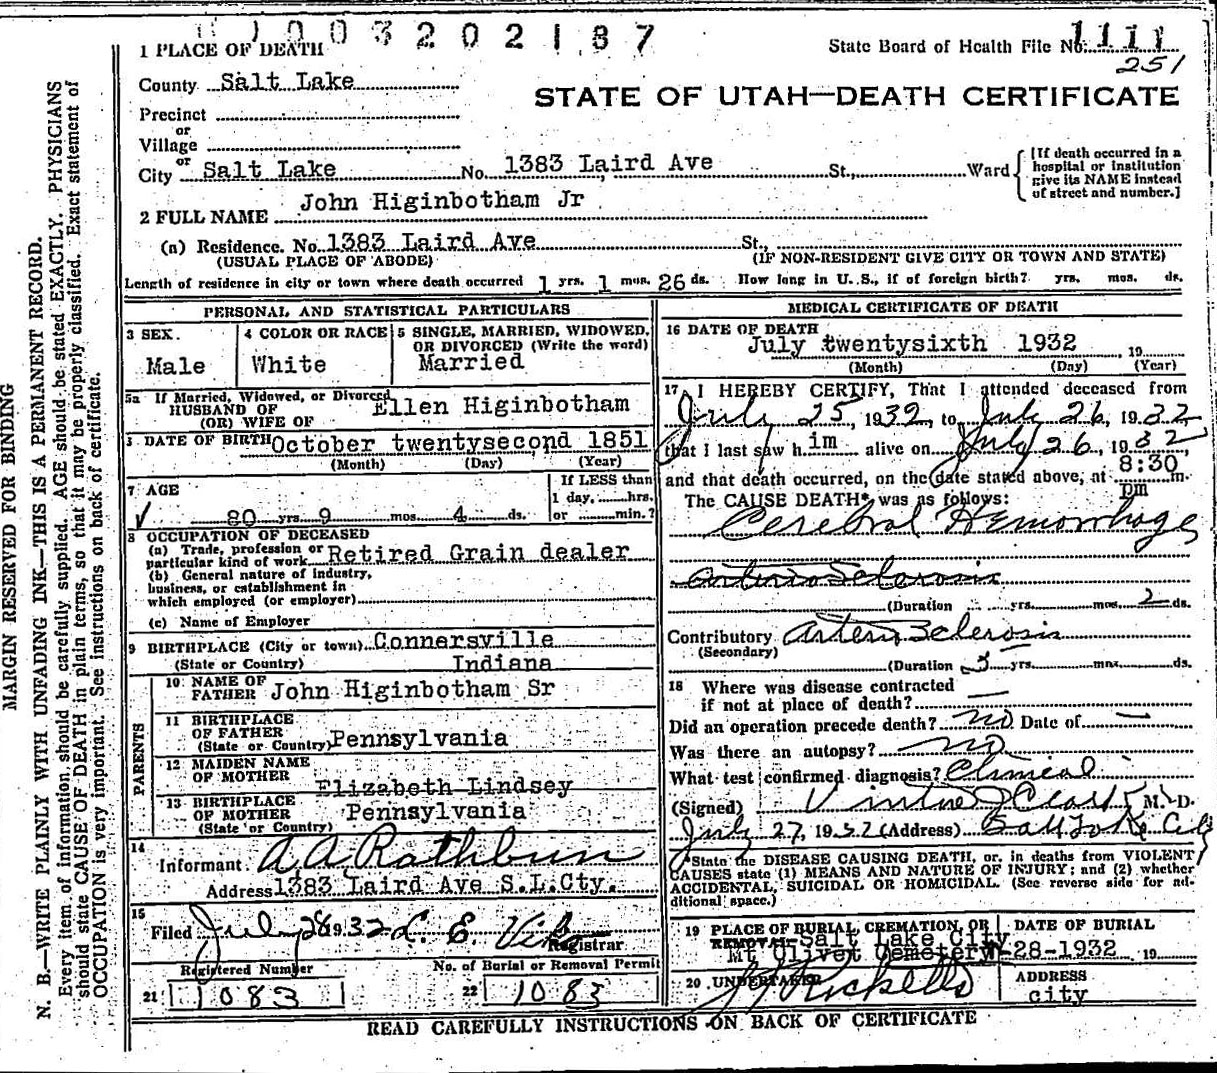 1003202187
1 PLACE OF DEATH
State Board of Health File No. 1111
251
County Salt Lake
STATE OF UTAH—DEATH CERTIFICATE
Precinct
or
Village
or
City Salt Lake No. 1383 Laird Ave St., Ward {[If death occurred in a hospital or institution give its NAME instead of street and number.]
2 FULL NAME John Higinbotham Jr
(a) Residence. No. 1383 Laird Ave St.,
(USUAL PLACE OF ABODE) (IF NON-RESIDENT GIVE CITY OR TOWN AND STATE)
Length of residence in city or town where death occurred 1 yrs. 1 mos. 26 ds. How long in U. S., if of foreign birth? yrs. mos. ds.
PERSONAL AND STATISTICAL PARTICULARS
3 SEX.
Male
4 COLOR OR RACE
White
5 SINGLE, MARRIED, WIDOWED,
OR DIVORCED (Write the word)
Married
5a If Married, Widowed, or Divorced
HUSBAND OF Ellen Higinbotham
(OR) WIFE OF
DATE OF BIRTH October twentysecond 1851
(Month) (Day) (Year)
7 AGE
80 yrs. 9 mos. 4 ds.
If LESS than
1 day, hrs.
or min.?
8 OCCUPATION OF DECEASED
(a) Trade, profession or
particular kind of work Retired Grain dealer
(b) General nature of industry,
business, or establishment in
which employed (or employer)
(c) Name of Employer
9 BIRTHPLACE (City or town) Connersville
(State or Country) Indiana
PARENTS
10 NAME OF
FATHER John Higinbotham Sr
11 BIRTHPLACE
OF FATHER
(State or Country) Pennsylvania
12 MAIDEN NAME
OF MOTHER
Elizabeth Lindsey
13 BIRTHPLACE
OF MOTHER Pennsylvania
(State or Country)
14
Informant A A Rathbun
Address 1383 Laird Ave S.L.Cty.
15
Filed July 28 1932 L. E. Registrar
Registered Number
21 1083
No. of Burial or Removal Permit
22 1083
MEDICAL CERTIFICATE OF DEATH
16 DATE OF DEATH
July twentysixth 1932 , 19
(Month) (Day) (Year)
17 I HEREBY CERTIFY, That I attended deceased from
July 25, 1932, to July 26, 1932
that I last saw him alive on July 26, 1932,
and that death occurred, on the date stated above, at 8:30 m.
pm
The CAUSE DEATH* was as follows:
Cerebral Hemorrhage
Arterio Sclerosis
(Duration yrs. mos. 2 ds.
Contributory Arterio Sclerosis
(Secondary)
(Duration 5 yrs. mos. ds.
18 Where was disease contracted
if not at place of death? —
Did an operation precede death? no Date of —
Was there an autopsy? no
What test confirmed diagnosis? Clinical
(Signed) M. D.
July 27, 1932 (Address) Salt Lake City
*State the DISEASE CAUSING DEATH, or, in deaths from VIOLENT
CAUSES state (1) MEANS AND NATURE OF INJURY; and (2) whether
ACCIDENTAL, SUICIDAL OR HOMICIDAL. (See reverse side for ad-
ditional space.)
19 PLACE OF BURIAL, CREMATION, OR
REMOVAL Salt Lake City
Mt Olivet Cemetery
DATE OF BURIAL
7-28-1932 19
20 UNDERTAKER
ADDRESS
city
READ CAREFULLY INSTRUCTIONS ON BACK OF CERTIFICATE
MARGIN RESERVED FOR BINDING
N. B.—WRITE PLAINLY WITH UNFADING INK—THIS IS A PERMANENT RECORD.
Every item of information should be carefully supplied. AGE should be stated EXACTLY. PHYSICIANS
should state CAUSE OF DEATH in plain terms, so that it may be properly classified. Exact statement of
OCCUPATION is very important. See instructions on back of certificate.